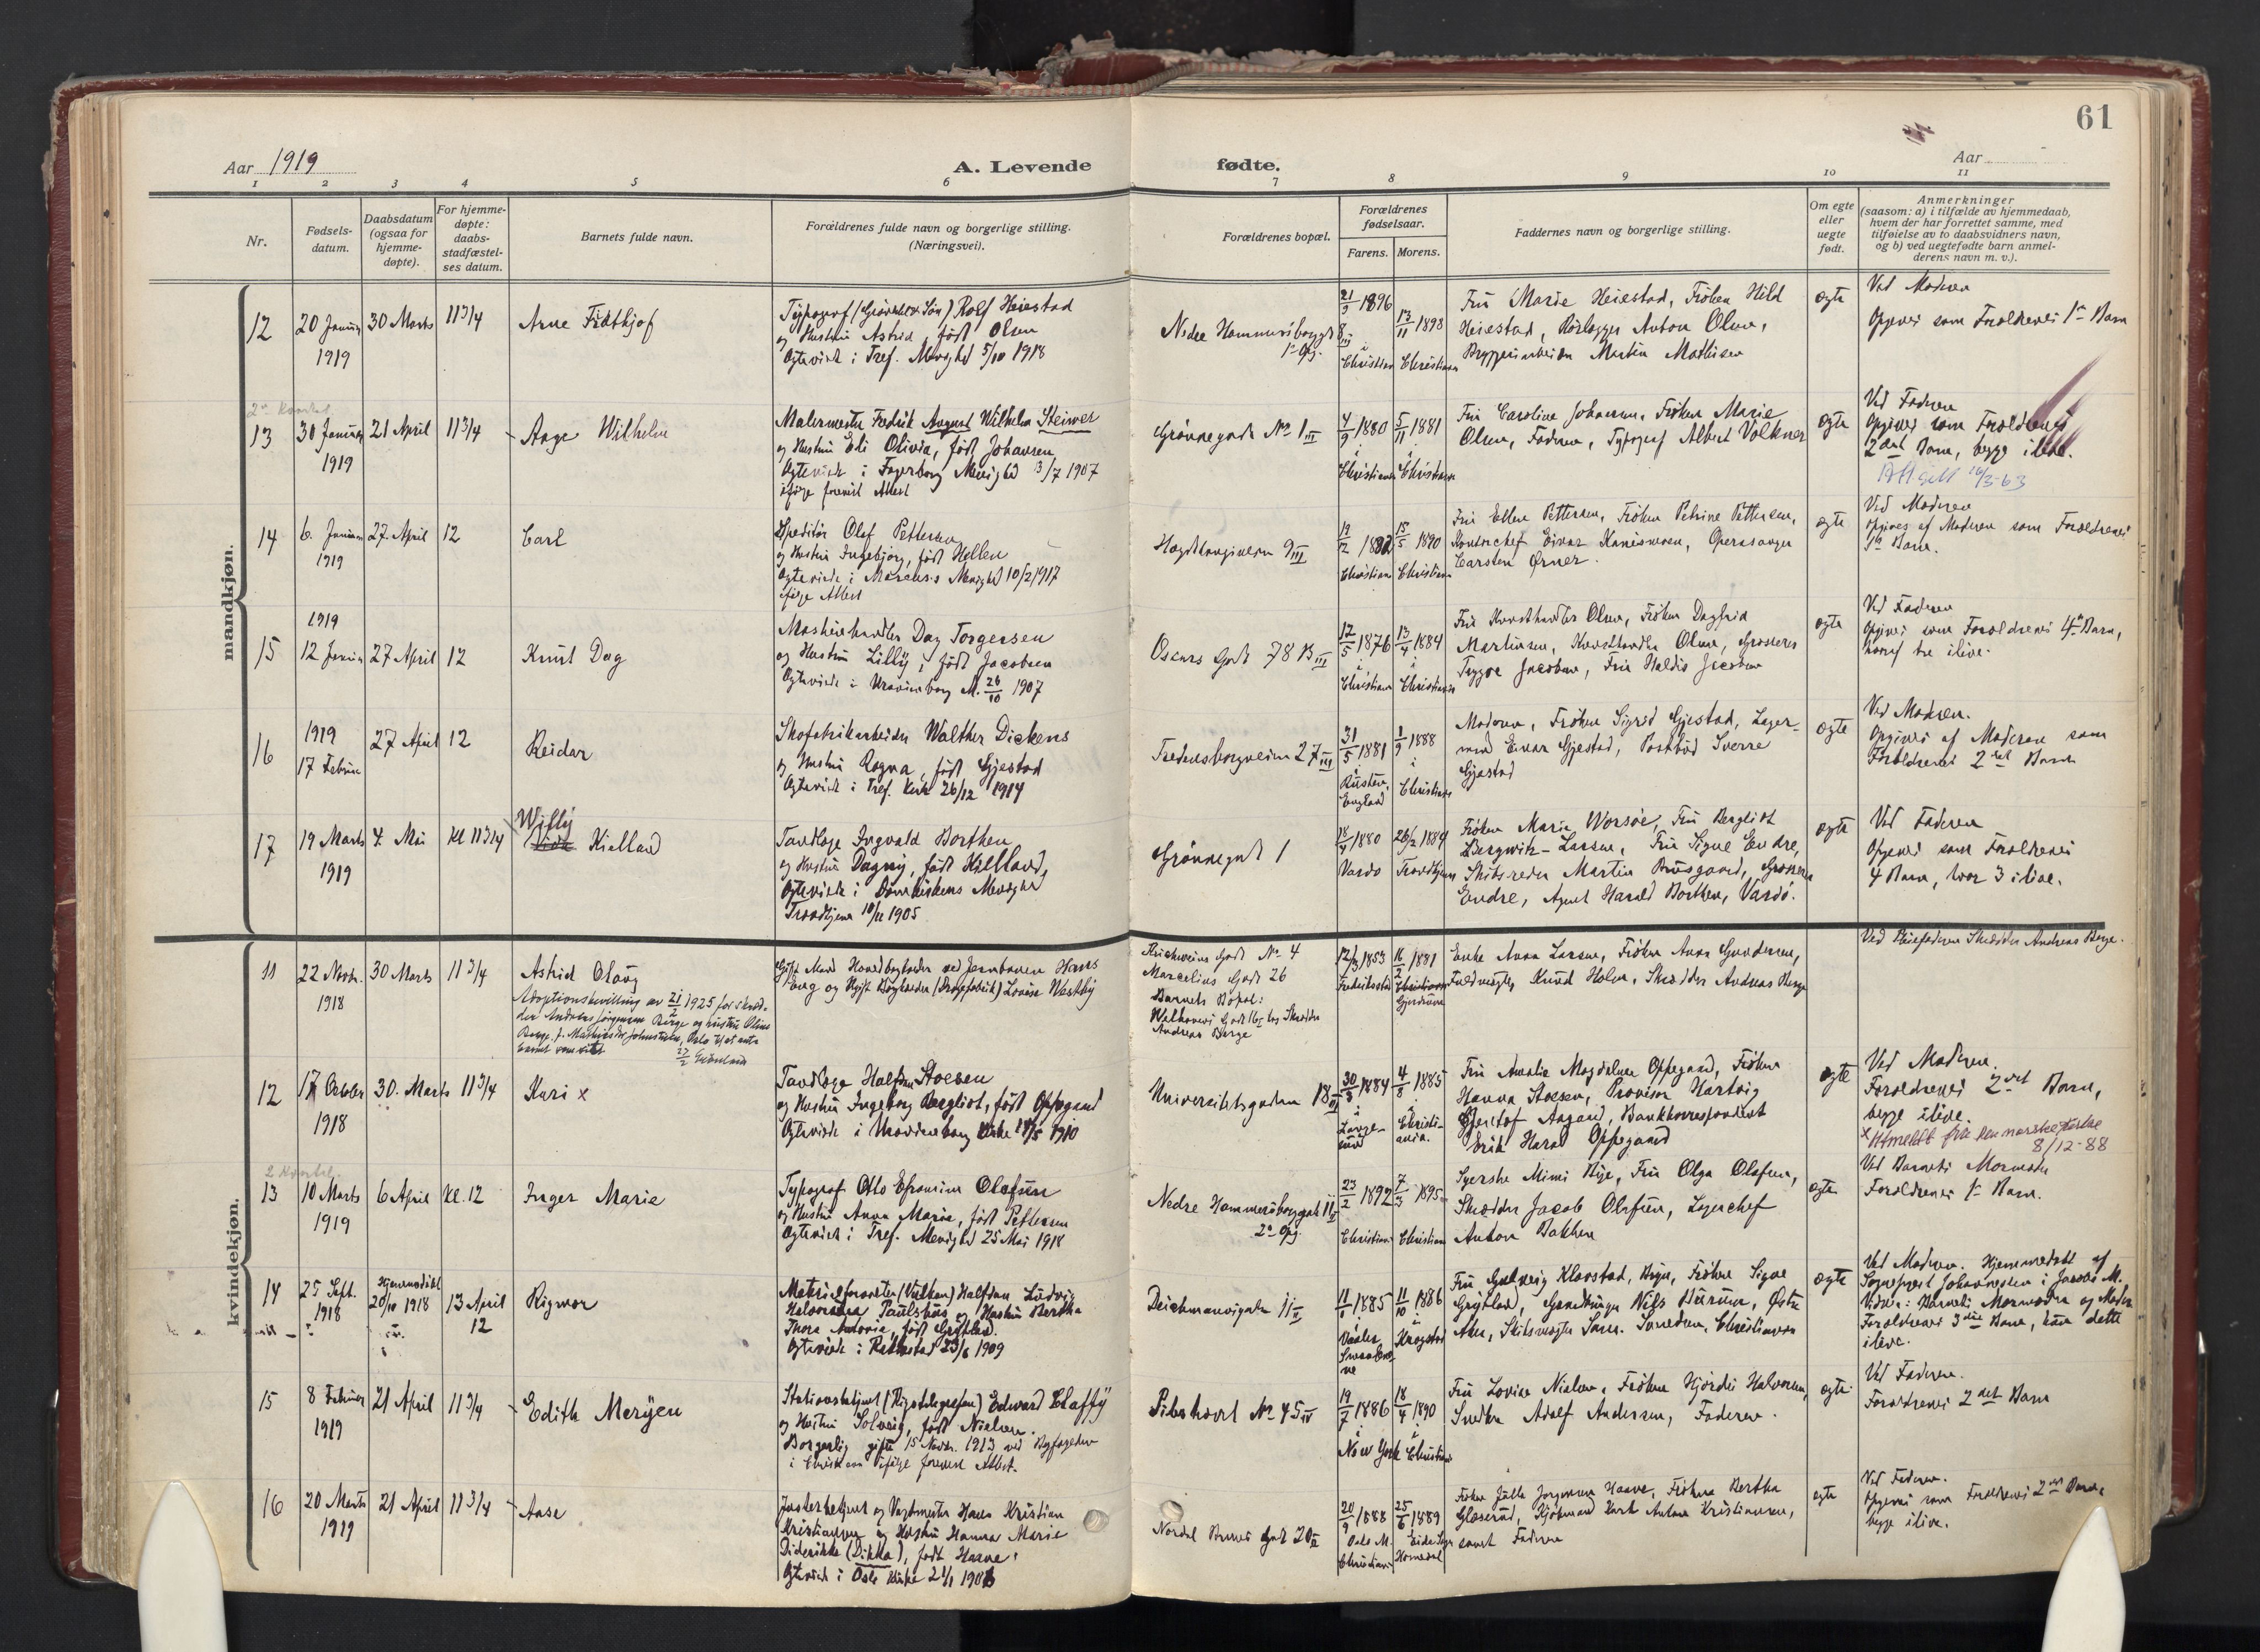 61
Aar 1919
A. Levende
fødte.
Aar
1 2 3 4 5 6 7 8 9 10 11
Nr.
Fødsels-
datum.
Daabsdatum
(ogsaa for
hjemme-
døpte).
For hjemme-
døpte:
daabs-
stadfæstel-
ses datum.
Barnets fulde navn.
Forældrenes fulde navn og borgerlige stilling.
(Næringsvei).
Forældrenes bopæl.
Forældrenes
fødselsaar.
Farens. Morens.
Faddernes navn og borgerlige stilling.
Om egte
eller
uegte
født.
Anmerkninger
(saasom: a) i tilfælde av hjemmedaab,
hvem der har forrettet samme, med
tilføielse av to daabsvidners navn,
og b) ved uegtefødte barn anmel-
derens navn m. v.).
mandkjøn.
12
20 Januar
1919
30 Marts
11 3/4
Arne Fridtkjof
Typograf Rolf Heiestad
og Hustru Astrid, født Olsen
Egteviede i Tref. Menighed 5/10 1918
21/9 1896
Christian
13/11 1898
Christiania
Fru Marie Heiestad, Frøken Hild
Heiestad, Rørlægger Anton Olsen,
Bryggeriarbeider Martin Mathisen
egte
Ved Moderen
Opgives som Forældrenes 1ste Barn
13
30 Januar
1919
21 April
11 3/4
Aage Wilhelm
Malermester Fredrik August Wilhelm Steiwer
og Hustru Edi Olivia, født Johansen
Egteviede i Fagerborg Menighed 3/7 1907
ifølge forevist Attest
Grønnegade No 1 III
4/9 1880
Christiania
5/11 1881
Christiania
Fru Caroline Johansen, Frøken Marie
Olsen, Faderen, Typograf Albert Volkner
egte
Ved Faderen
Opgives som Forældrenes
2det Barn, begge ilive.
14
6. Januar
1919
27. April
12
Carl
Speditør Olaf Pettersen
og Hustru Ingebjørg, født Hellen
Egteviede i Marcus's Menighed 10/2 1917
ifølge Attest
9 III
Christiania
15/5 1890
Christiania
Fru Ellen Pettersen, Frøken Petrine Pettersen,
Kontorchef Einar, Operasanger
Carsten Ørner.
egte
Ved Moderen
opgives af Moderen som Forældrenes
1ste Barn.
15
1919
12 Januar
27 April
12
Knut Dag
Maskinhandler Dag Torgersen
og Hustru Lilly, født Jacobsen
Egteviede i Uranienborg M. 26/10 1907
Oscars Gade 78 B III
12/5 1876
Christiania
13/4 1884
Christiania
Fru Olsen, Frøken Dagfrid
Martinsen, Olsen, Grosserer
Trygve Jacobsen, Fru Haldis Jacobsen
egte
Ved Faderen
Opgives som Forældrenes 4de Barn,
hvoraf tre ilive.
16
1919
17 Februar
27 April
12
Reidar
Skofabrikarbeider Walther Dickens
og Hustru Ragna, født Gjestad
Egteviede i Tref. Kirke 26/12 1914
Fredensborgveien 27 III
31/5 1881
England
1/9 1888
Christiania
Moderen, Frøken Sigrid Gjestad, Lager-
mand Einar Gjestad, Postbud Sverre
Gjestad
egte
Ved Moderen.
Opgives af Moderen som
Forældrenes 2det Barn
17
19 Marts
1919
4. Mai
Kl 11 3/4
Willy Kielland
Tandlæge Ingvald Borthen
og Hustru Dagny, født Kielland,
Egteviede i Domkirkens Menighed
Trondhjem 10/11 1905
Grønnegade 1
1880
Vardø
26/2 1884
Trondhjem
Frøken Marie Worsøe, Fru Bergliot
Bergwitz-Larsen, Fru Signe Endre,
Skibsreder Martin Brusgaard, Grosserer
Endre, Agent Harald Borthen, Vardø.
egte
Ved Faderen
Opgives som Forældrenes
4 Barn, hvor 3 ilive.
kvindekjøn.
11
22 Novbr.
1918
30 Marts
11 3/4
Astrid Olaug
Adoptionsbevilling av 21/2 1925 for skræd-
der Andreas Jørgensen Berge og hustru
Marcelius Gade 26
Barnets Bopæl:
Andreas Berge
12/3 1853
Fredrikstad
16/2 1881
Enke Anna Larsen, Frøken Anna Gundersen,
Fuldmægtig Knud Holm, Skrædder Andreas Berge
Ved Pleiefaderen Skrædder Andreas Berge.
12
17 October
1918
30. Marts
11 3/4
Kari x
Tandlæge Halfdan Stoesen
og Hustru Ingeborg Bergliot, født Oppegaard
Egteviede i Uranienborg Kirke 1910
Universitetsgaden 18
30/3 1884
Lange-
sund
4/8 1885
Christi-
ania.
Fru Amalie Magdalene Oppegaard, Frøken
Hanna Stoesen, Provisor Hartvig
Aagaard, Bankkorrespondent
Erik Harald Oppegaard
egte
Ved Moderen.
Forældrenes 2det Barn,
begge ilive.
x Utmeldt fra den norske kirke
8/12-88
2 Kvartal.
13
10 Marts
1919
6 April
Kl. 12
Inger Marie
Typograf Otto Efraimius Olafsen
og Hustru Anna Marie, født Pettersen
Egteviede i Tref. Menighed 25 Mai 1918
Nedre Hammersborggade 11 II
2. Opg.
23/2 1892
Christiania
7/3 1895
Christiania
Syerske Mimi Bye, Fru Olga Olafsen,
Skrædder Jacob Olafsen, Lagerchef
Anton Bakken
egte
Ved Barnets Mormoder
Forældrenes 1ste Barn.
14
25 Sept.
1918
Hjemmedøbt
20/10 1918
13 April
12
Rigmor
Materialforvalter (Vulkan) Halfdan Ludvig
Halvorsen Paulshus og Hustru Bertha
Thora Antonia, født Grytlad.
Egteviede i Rakkestad 23/6 1909
Deichmansgade 11 II
1885
11/10 1886
Kragstad
Fru Klavstad, Frøken Signe
Aker, Christiania
egte
Ved Moderen. Hjemmedøbt af
Sogneprest Johannesen i Jacobs M.
Vidner: Barnets Mormoder og Moder
Forældrenes 3die Barn, kun dette
ilive.
15
8 Februar
1919
21 April
11 3/4
Edith Meryen
Stationsbetjent (Rigstelegrafen) Edward Claffy
og Hustru Solveig, født Nielsen.
Borgerlig gifte 15 Novbr. 1913 ved Byfogden
i Christiania ifølge forevist Attest.
Piberhavet No 45 IV
19/7 1886
New York
18/4 1890
Christiania
Fru Lovise Nielsen, Frøken Hjørdis Halvorsen,
Snedker Adolf Andersen, Faderen.
egte
Ved Faderen.
Forældrenes 2det Barn
16
20 Marts
1919
21 April
11 3/4
Aase
og Vagtmester Hans Kristian
Kristiansen og Hustru Hanna Marie
Diderikke (Dikka), født Haave.
Egteviede i Oslo Kirke
Nordal Bruns Gade 20
20/9 1888
Oslo M.
Christiania
25/6 1889
Frøken Julla Jørgensen Haave, Frøken Bertha
Glæserud, Kjøbmand Karl Anton Kristiansen,
samt Faderen
egte
Ved Faderen.
Opgives som Forældrenes 2det Barn,
begge ilive.